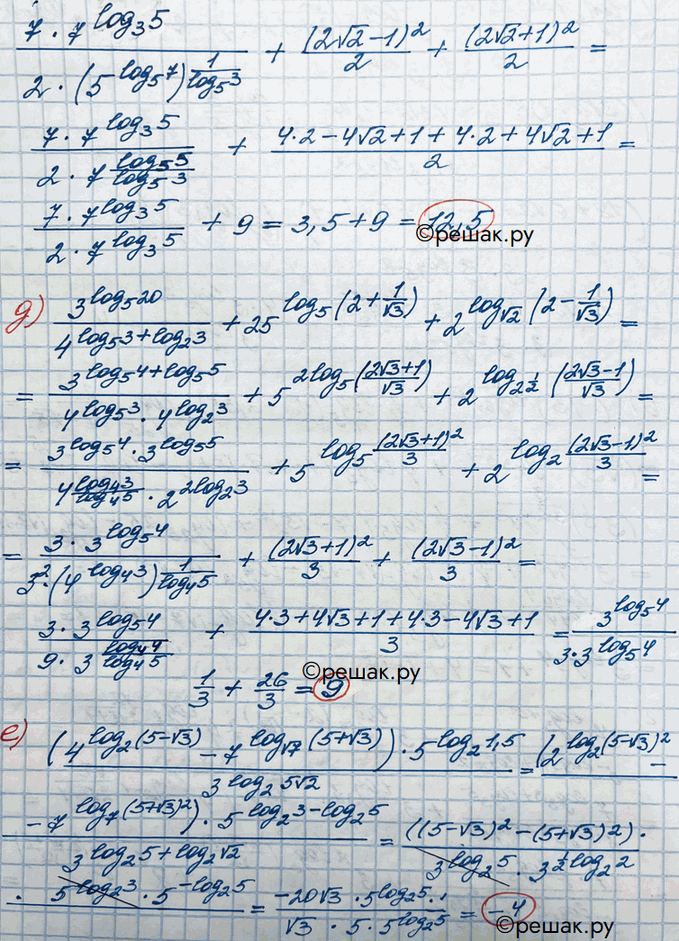 (7 · 7^(log₃5)) / (2 · (5^(log₅7))^(1/log₅3)) + (2√2 − 1)²/2 + (2√2 + 1)²/2 =
(7 · 7^(log₃5)) / (2 · 7^(log₅5/log₅3)) + (4·2 − 4√2 + 1 + 4·2 + 4√2 + 1)/2 =
(7 · 7^(log₃5)) / (2 · 7^(log₃5)) + 9 = 3,5 + 9 = 12,5
©решак.ру
д) 3^(log₅20) / 4^(log₅3 + log₂3) + 25^(log₅(2 + 1/√3)) + 2^(log_√2(2 − 1/√3)) =
= 3^(log₅4 + log₅5) / (4^(log₅3) · 4^(log₂3)) + 5^(2log₅((2√3+1)/√3)) + 2^(log_(2^(1/2))((2√3−1)/√3)) =
= (3^(log₅4) · 3^(log₅5)) / (4^(log₄3/log₄5) · 2^(2log₂3)) + 5^(log₅((2√3+1)²/3)) + 2^(log₂((2√3−1)²/3)) =
= (3 · 3^(log₅4)) / (3² · (4^(log₄3))^(1/log₄5)) + (2√3+1)²/3 + (2√3−1)²/3 =
(3 · 3^(log₅4)) / (9 · 3^(log₄4/log₄5)) + (4·3 + 4√3 + 1 + 4·3 − 4√3 + 1)/3 = 3^(log₅4) / (3·3^(log₅4))
1/3 + 26/3 = 9
©решак.ру
е) ((4^(log₂(5−√3)) − 7^(log_√7(5+√3))) · 5^(log₂1,5)) / 3^(log₂5√2) = (2^(log₂(5−√3)²) −
− 7^(log₇(5+√3)²)) · 5^(log₂3 − log₂5) / 3^(log₂5 + log₂√2) = ((5−√3)² − (5+√3)²) · / (3^(log₂5) · 3^(½log₂2))
· 5^(log₂3) · 5^(−log₂5) = (−20√3 · 5^(log₂5) · ) / (√3 · 5 · 5^(log₂5)) = −4
©решак.ру